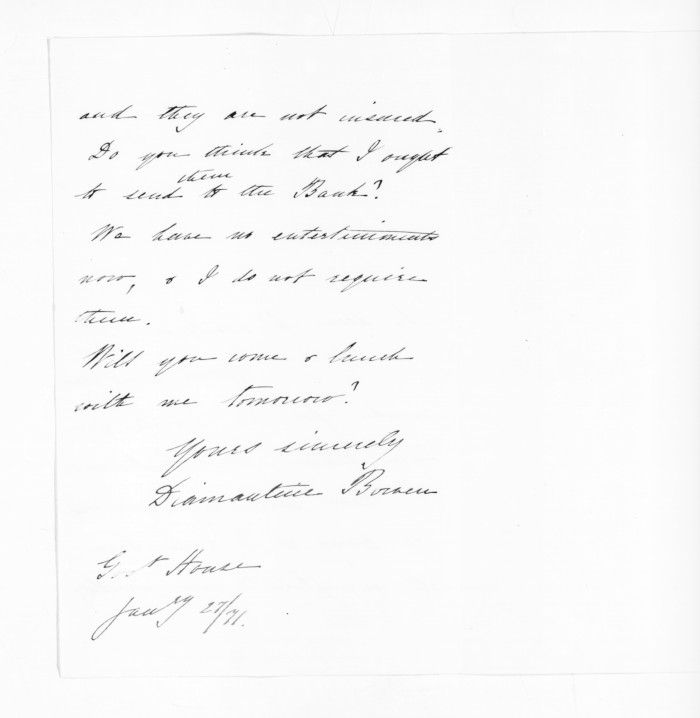 and they are not insured.
Do you think that I ought
to send them to the Bank?
We have no entertainments
now, & I do not require
them.
Will you come & lunch
with me tomorrow?
Yours sincerely
Diamantine Bowen
Govt House
Jany 27/71.